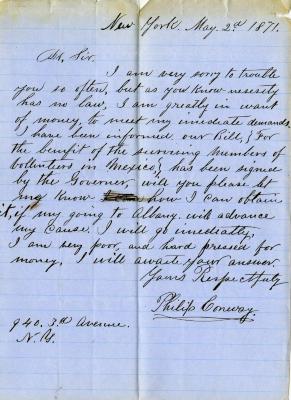 New York. May. 2d 1871.
Dr. Sir.
I am very sorry to trouble
you so often, but as you know nesesity
has no law, I am greatly in want
of money, to meet my imediate demands.
I have been informed our Bill, {For
the benefit of the surviving numbers of
vollinteers in Mexico,} has been signed
by the Governer, will you please let
my know how I can obtain
it, if my going to Albany. will advance
my cause. I will go imediatly,
I am very poor, and hard pressed for
money, I will awaite your answer.
Yours Respectfuly
Philip Conway.
940. 3rd Avenue.
N. Y.